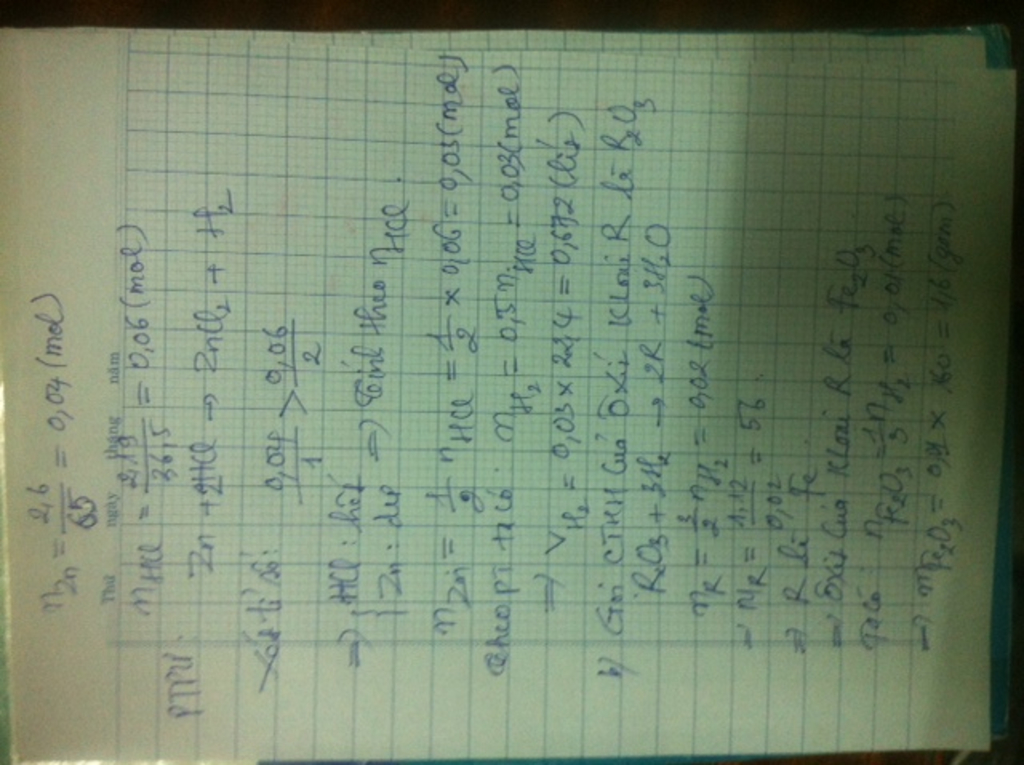 n_Zn = 2,6/65 = 0,04 (mol)
Thứ ngày tháng năm
n_HCl = 2,19/36,5 = 0,06 (mol)
PTPƯ: Zn + 2HCl → ZnCl2 + H2
Xét tỉ số: 0,04/1 > 0,06/2
⇒ HCl: hết
Zn: dư ⇒ Tính theo n_HCl.
n_Zn = 1/2 n_HCl = 1/2 x 0,06 = 0,03 (mol)
Theo PT ta có: n_H2 = 0,5 n_HCl = 0,03 (mol)
⇒ V_H2 = 0,03 x 22,4 = 0,672 (lít)
b/ Gọi CTHH của Oxit Kloại R là R2O3
R2O3 + 3H2 → 2R + 3H2O
n_R = 2/3 n_H2 = 0,02 (mol)
→ M_R = 1,12/0,02 = 56.
⇒ R là Fe
→ Oxit của Kloại R là Fe2O3
Ta có: n_Fe2O3 = 1/3 n_H2 = 0,01 (mol)
→ m_Fe2O3 = 0,01 x 160 = 1,6 (gam)